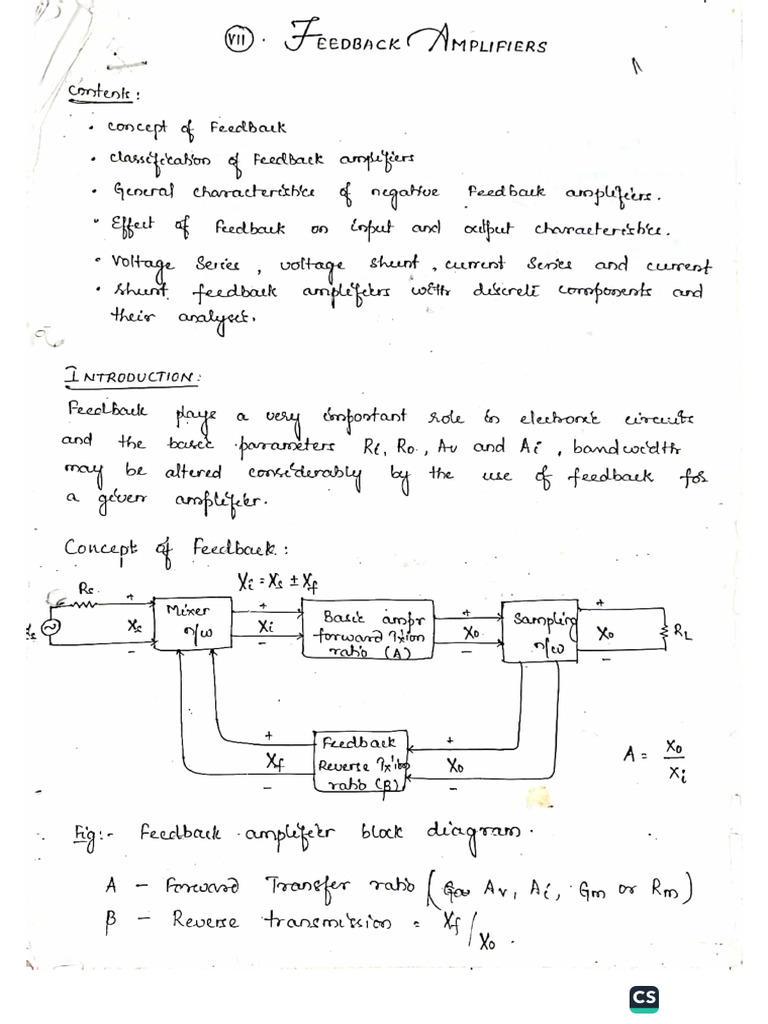 VII. FEEDBACK AMPLIFIERS
Contents:
• concept of Feedback
• classification of Feedback amplifiers
• General characteristics of negative Feedback amplifiers.
• Effect of Feedback on input and output characteristics.
• Voltage Series, voltage shunt, current Series and current
• shunt feedback amplifiers with discrete components and
their analysis.
INTRODUCTION:
Feedback plays a very important role in electronic circuits
and the basic parameters Ri, Ro, Av and Ai, bandwidth
may be altered considerably by the use of feedback for
a given amplifier.
Concept of Feedback:
Xi = Xs ± Xf
Rs
+ + + +
Mixer
n/w
Basic ampr
forward Txion
ratio (A)
Sampling
n/w
Xs Xi Xo Xo RL
- - - -
Feedback
Reverse Txion
ratio (β)
+ +
Xf Xo
- -
A = Xo/Xi
Fig:- Feedback amplifier block diagram.
A – Forward Transfer ratio (Av, Ai, Gm or Rm)
β – Reverse transmission = Xf/Xo.
CS